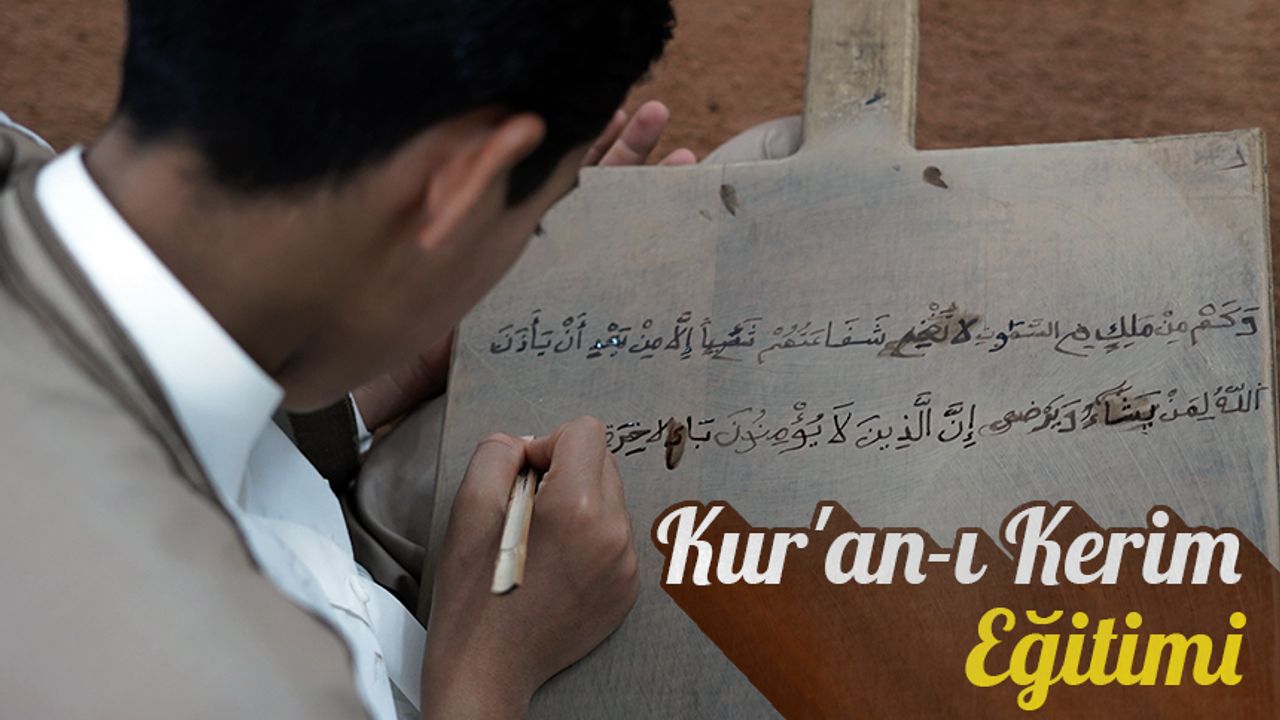 وَكَم مِّن مَّلَكٍ فِي السَّمَٰوَٰتِ لَا تُغْنِي شَفَاعَتُهُمْ شَيْئًا إِلَّا مِنْ بَعْدِ أَنْ يَأْذَنَ
اللَّهُ لِمَنْ يَشَاءُ وَيَرْضَى إِنَّ الَّذِينَ لَا يُؤْمِنُونَ بِالْآخِرَةِ
Kur'an-ı Kerim
Eğitimi